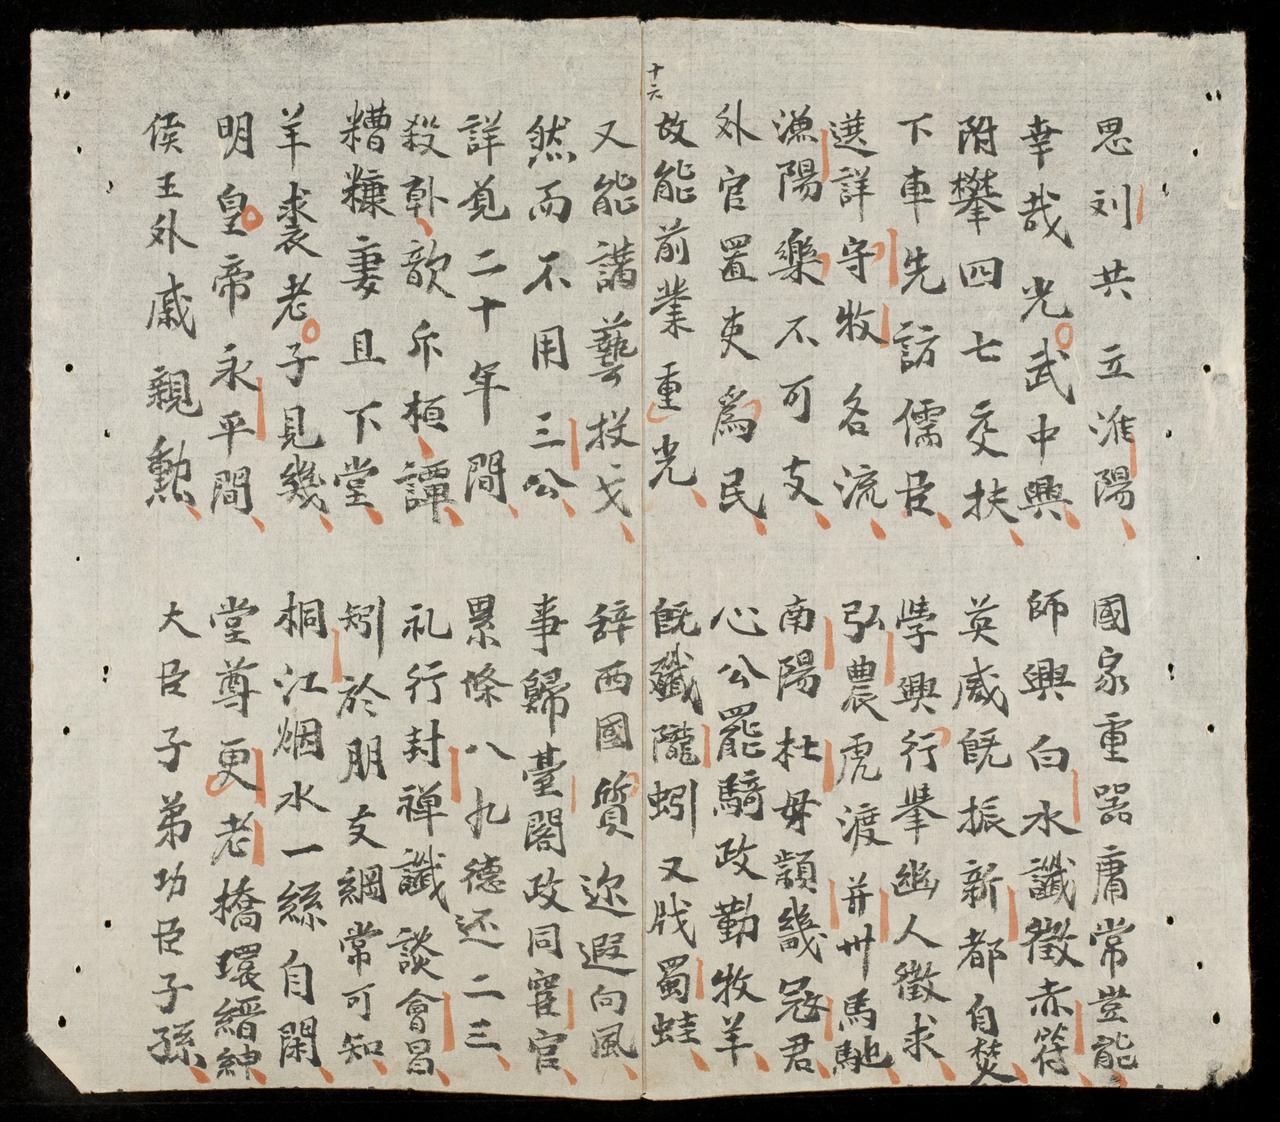 思刘共立淮陽 國家重器庸常豈能
幸哉光武中興 師興白水讖徵赤符
附攀四七交扶 英威既振新都自焚
下車先訪儒臣 學興行舉幽人徵求
選詳守牧各流 弘農虎渡并州馬馳
漁陽樂不可支 南陽杜母潁畿冦君
外官置吏爲民 心公罷騎政勤牧羊
十六
故能前業重光 既殲隴蚓又戕蜀蛙
又能講藝投戈 辞西國質迩遐向風
然而不用三公 事歸臺閣政同宦官
詳覓二十年間 累條八九德还二三
殺韩歆斥桓譚 礼行封禅讖談會昌
糟糠妻且下堂 矧於朋友綱常可知
羊裘老子見幾 桐江烟水一絲自閑
明皇帝永平間 堂尊更老橋環縉紳
侯王外戚親勲 大臣子弟功臣子孫